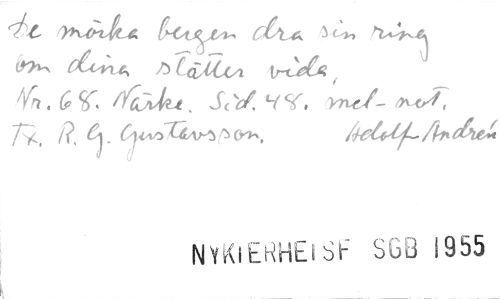 De mörka bergen dra sin ring
om dina slätter vida,
Nr. 68. Närke. Sid. 48. mel-not.
Tx. R. G. Gustavsson. Adolf Andrén
NYKIERHEISF SGB 1955